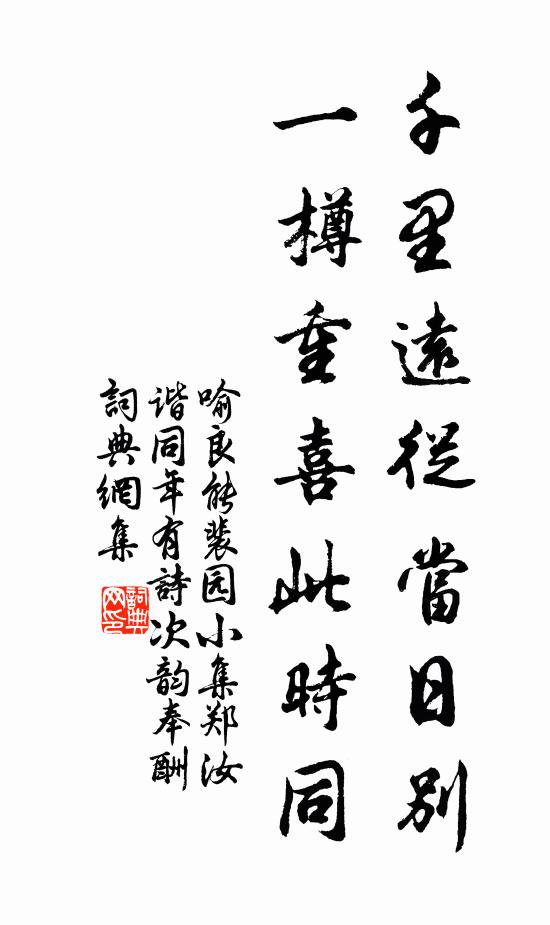 千里遠從當日別
一樽重喜此時同
喻良能裴园小集郑汝
谐同年有詩次韵奉酬
詞典網集
詞典
网印